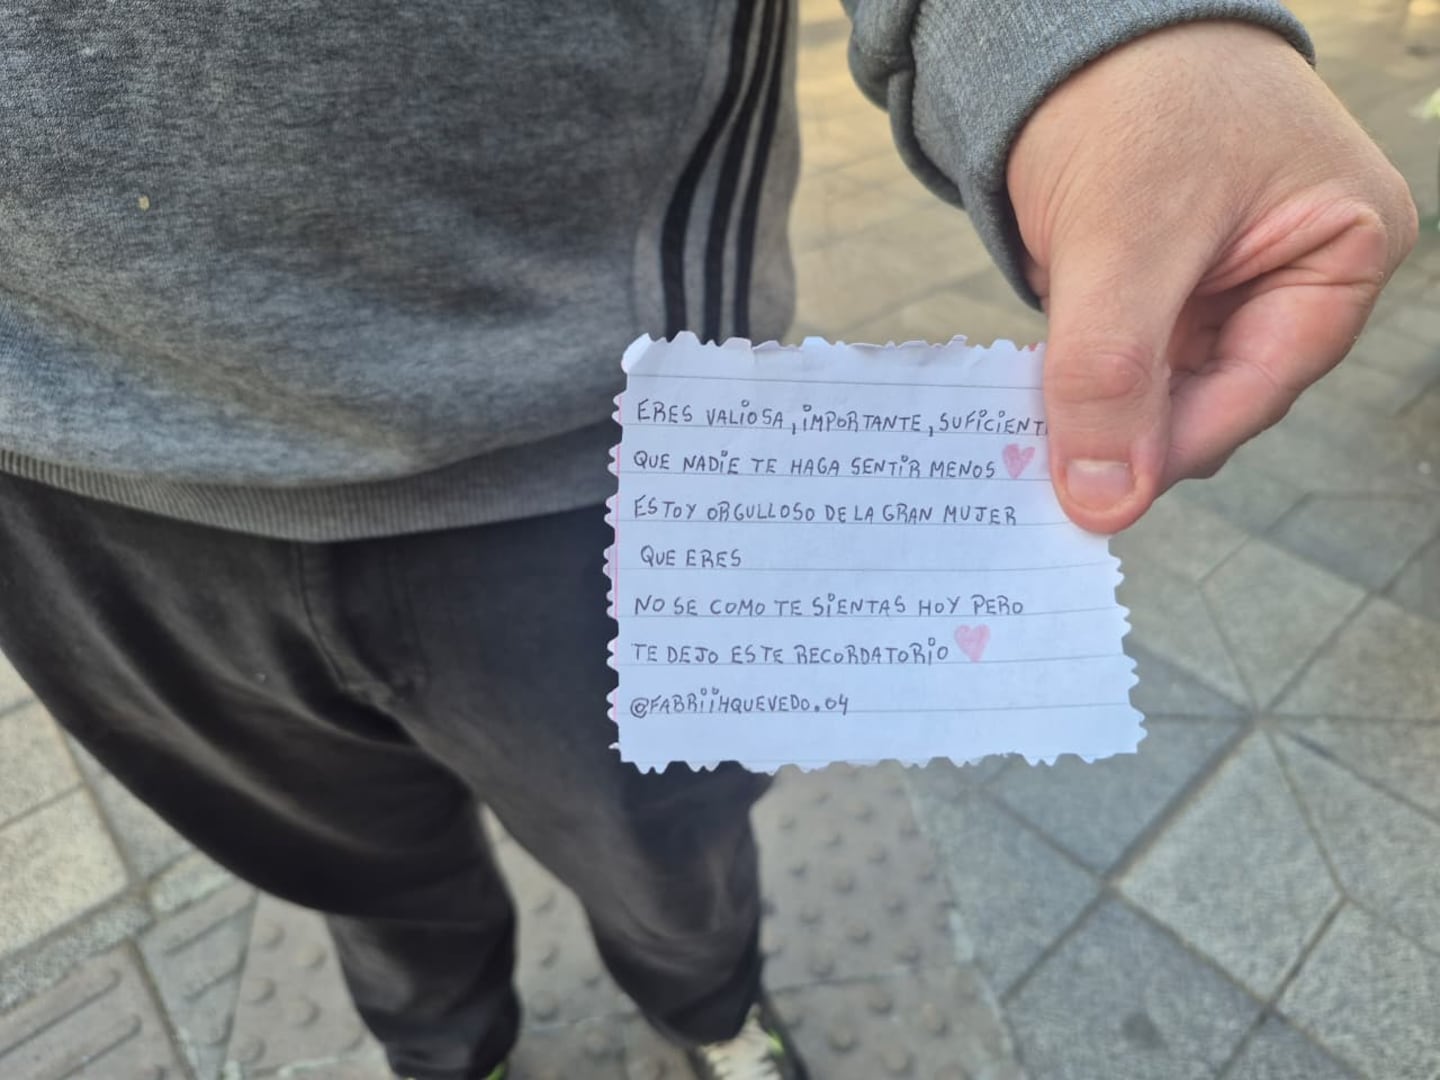 ERES VALIOSA, IMPORTANTE, SUFICIENT
QUE NADIE TE HAGA SENTIR MENOS
ESTOY ORGULLOSO DE LA GRAN MUJER
QUE ERES
NO SE COMO TE SIENTAS HOY PERO
TE DEJO ESTE RECORDATORIO
@FABRIIHQUEVEDO.04